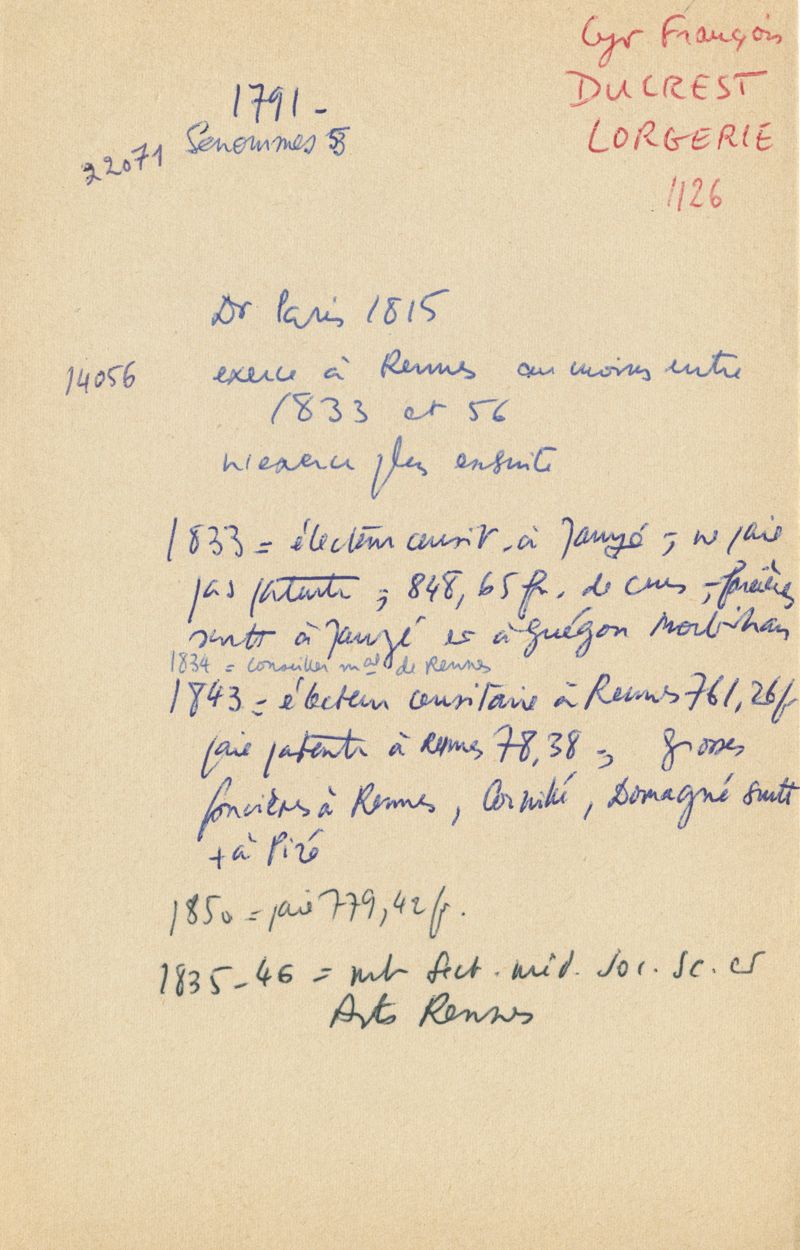 Cyr François
DUCREST
LORGERIE
1126
1791 -
22071 Senommes 53
Dr Paris 1815
14056 exerce à Rennes au moins entre
1833 et 56
n'exerce plus ensuite
1833 = électeur censit. à Janzé ; ne paie
pas patente ; 848,65 fr. de cens ; foncières
surtt à Janzé et à Guégon Morbihan
1834 = conseiller mal de Rennes
1843 = électeur censitaire à Rennes 761,26 f
paie patente à Rennes 78,38 ; grosses
foncières à Rennes, Cornillé, Domagné surtt
+ à Piré
1850 = paie 779,42 fr.
1835-46 = mb Sect. méd. Soc. Sc. et
Arts Rennes